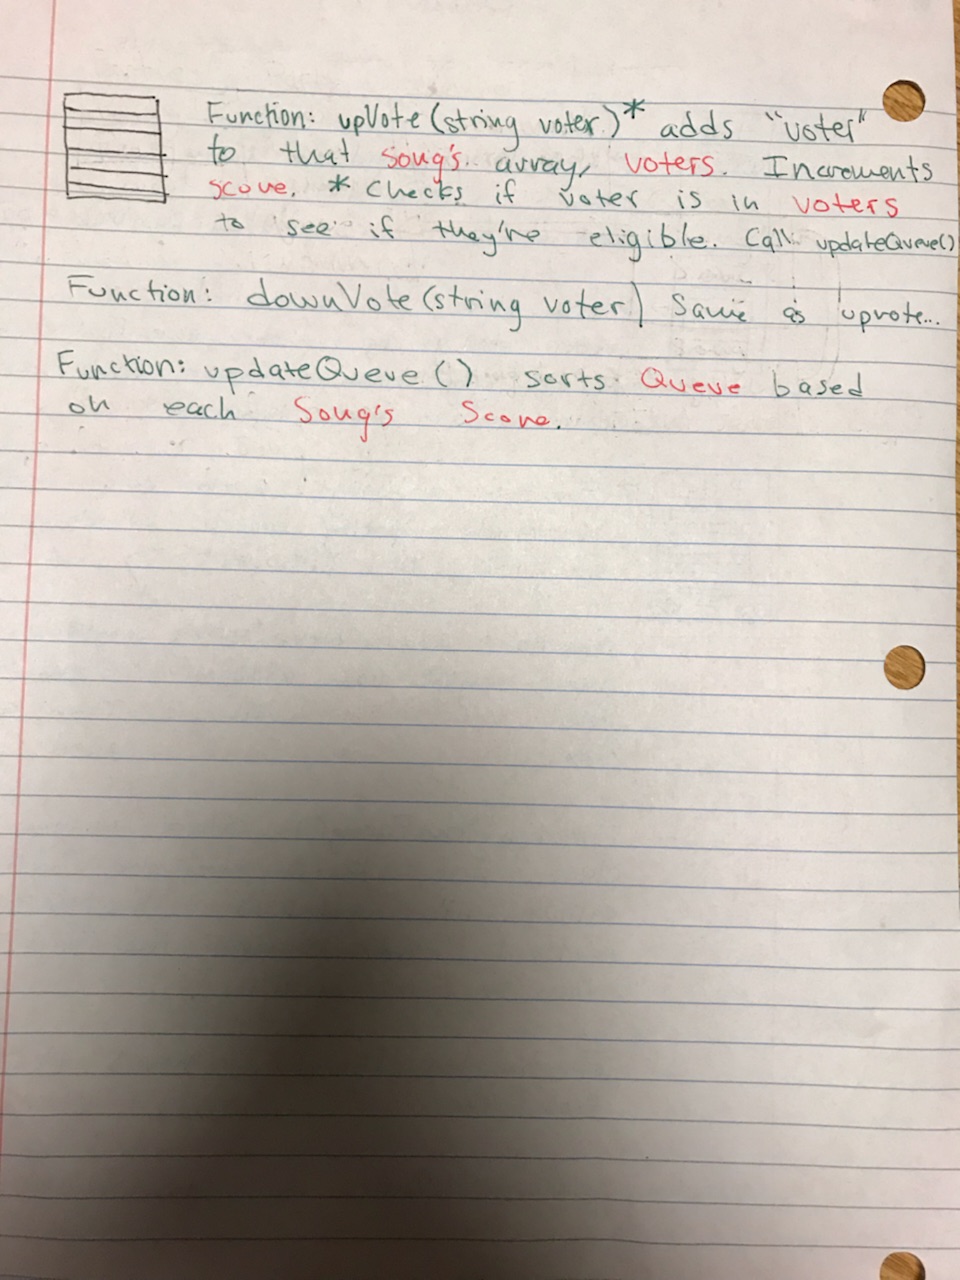 Function: upVote(string voter)* adds "voter"
to that song's array, voters. Increments
score. * Checks if voter is in voters
to see if they're eligible. Call updateQueue()
Function: downVote(string voter) Same as upvote...
Function: updateQueue() sorts Queue based
on each Song's Score.